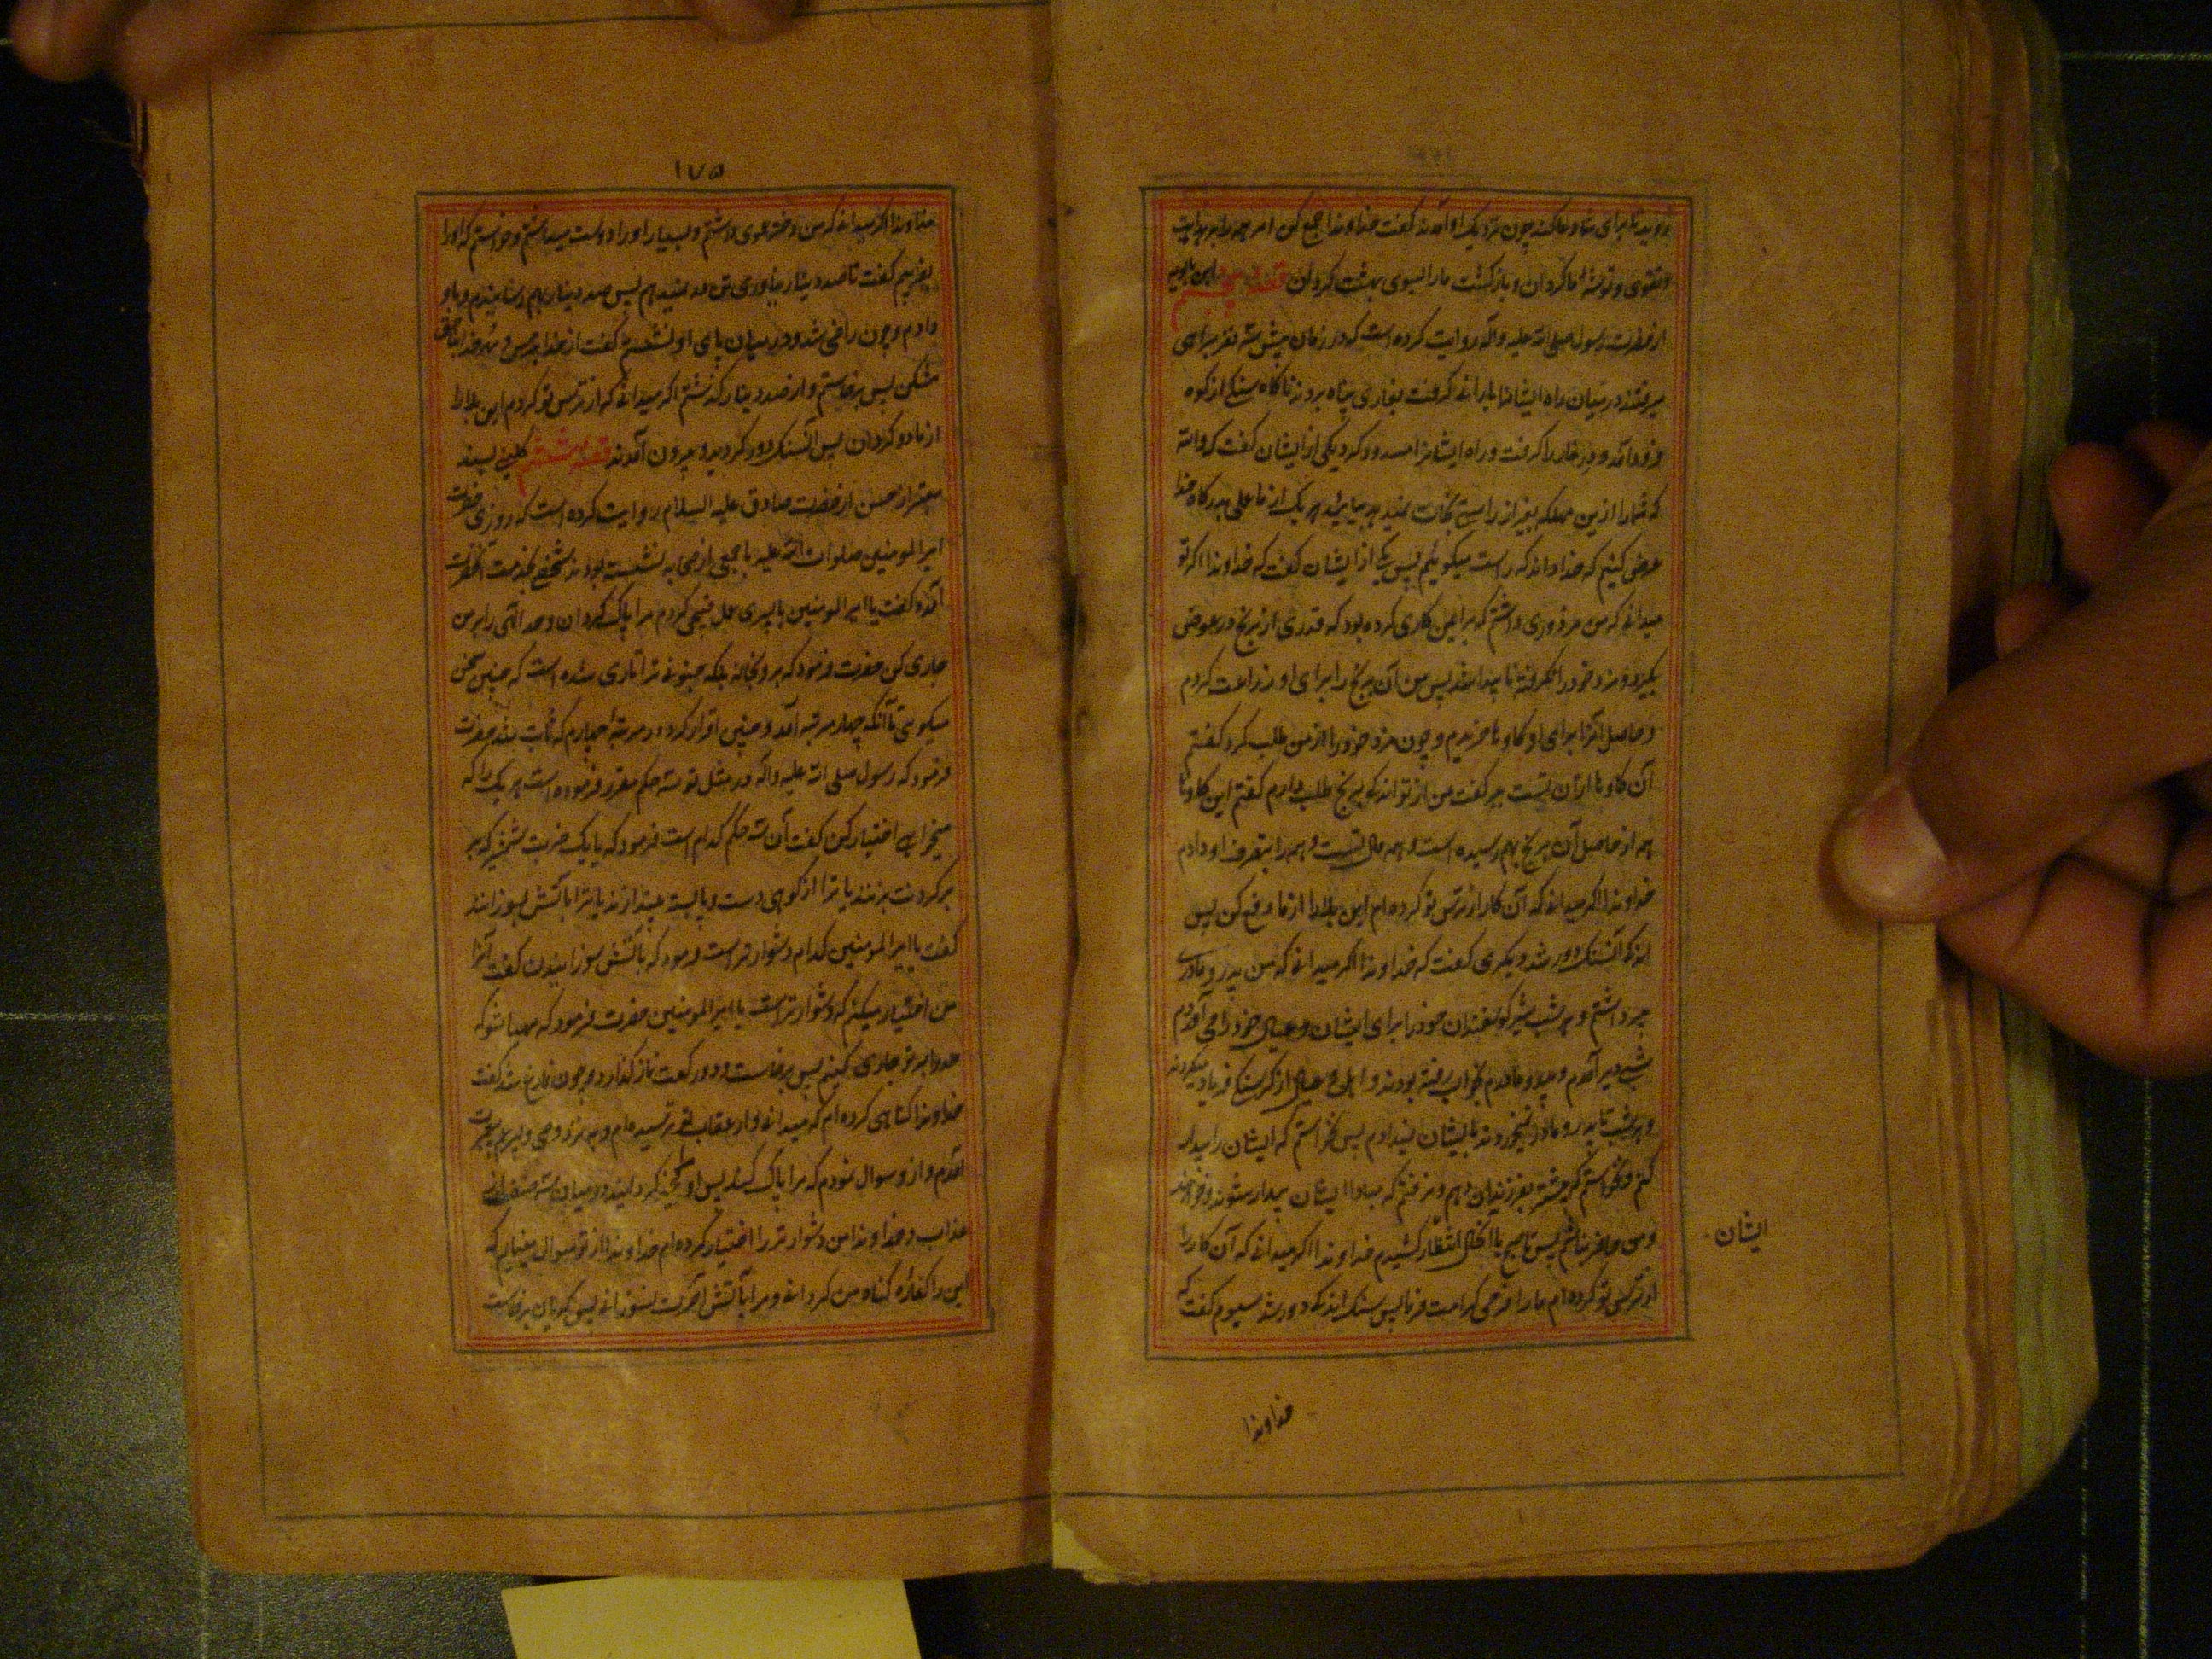 روید تا برای شما دعا کند چون نزدیک او آمدند گفت خداوندا جمع کن امر همه را بر هدایت
و تقوی و توشهٔ ما گردان و بازگشت ما را بسوی بهشت گردان قصه پنجم ابن بابویه
از حضرت رسول صلی الله علیه وآله روایت کرده است که در زمان پیش سه نفر براهی
میرفتند در میان راه ایشانرا بارانی گرفت بغاری پناه بردند ناگاه سنگی از کوه
فرود آمد و در غار را گرفت و راه ایشانرا مسدود کرد یکی از ایشان گفت که والله
که شما را ازین مهلکه بغیر از راستی نجات نمیدهد بیائید هر یک از ما عملی بدرگاه خدا
عرض کنیم که خدا داند که راست میگوئیم پس یکی از ایشان گفت که خداوندا اگر تو
میدانی که من مزدوری داشتم که برای من کاری کرده بود که قدری از برنج در عوض
بگیرد و مزد خود را نگرفته ناپیدا شد پس من آن برنج را برای او زراعت کردم
و حاصل آنرا برای او گاوها خریدم و چون مزد خود را از من طلب کرد گفتم
آن گاوها از آن تست ببر گفت من از تو اندک برنج طلب دارم گفتم این گاوها
همه از حاصل آن برنج بهم رسیده است و همه مال تست و همه را بتصرف او دادم
خداوندا اگر میدانی که آن کار از ترس تو کرده ام این بلا را از ما دفع کن پس
اندک آنسنگ دور شد دیگری گفت که خداوندا اگر میدانی که من پدر و مادری
پیر داشتم و هر شب شیر گوسفندان خود را برای ایشان و عیال خود می آوردم
شبی دیر آمدم و پدر و مادرم بخواب رفته بودند و اهل و عیال از گرسنگی فریاد میکردند
و هر شب تا پدر و مادر نمیخوردند بایشان نمیدادم پس نخواستم که ایشان را بیدار
کنم و نخواستم که پیشتر بفرزندان دهم و نرفتم که مبادا ایشان بیدار شوند و خواهند
ایشان
و من حاضر نباشم پس تا صبح با آنحال انتظار کشیدم خداوندا اگر میدانی که آن کار را
از ترس تو کرده ام ما را فرجی کرامت فرما پس سنگ اندک دور شد سیوم گفت که
خداوندا
۱۷۵
خداوندا اگر میدانی که من دختر عموی داشتم و بسیار او را دوست میداشتم و خواستم که او را
بفریبم گفت تا صد دینار نیاوری تن در نمیدهم پس صد دینار بهم رسانیدم و باو
دادم و چون راضی شد و در میان پای او نشستم گفت از خدا بترس و مهر خدا بناحق
مشکن پس برخاستم و از صد دینار گذشتم اگر میدانی که از ترس تو کردم این بلا را
از ما دور گردان پس آنسنگ دور گردید و بیرون آمدند قصه ششم کلینی بسند
معتبر از حسن از حضرت صادق علیه السلام روایت کرده است که روزی حضرت
امیر المومنین صلوات الله علیه با جمعی از صحابه نشسته بودند شخصی بخدمت آنحضرت
آمد و گفت یا امیر المومنین با پسری عمل قبیح کردم مرا پاک گردان و حد الهی را بر من
جاری کن حضرت فرمود که برو بخانه بلکه جنونی ترا تاری شده است که چنین سخن
میکوئی تا آنکه چهار مرتبه آمد و چنین اقرار کرد و در مرتبهٔ چهارم که ثابت شد حضرت
فرمود که رسول صلی الله علیه وآله در مثل تو سه حکم مقرر فرموده است هر یک را که
میخواهی اختیار کن گفت آن سه حکم کدام است فرمود که یا یک ضربت شمشیر که بر
بر گردنت بزنند یا ترا از کوهی دست و پا بسته بیندازند یا ترا بآتش بسوزانند
گفت یا امیر المومنین کدام دشوارتر است فرمود که بآتش سوزانیدن گفت آنرا
من اختیار میکنم که دشوارتر است یا امیر المومنین حضرت فرمود که مهیا شو که
حد را بر تو جاری کنیم پس برخاست و دو رکعت نماز گذارد و چون فارغ شد گفت
خداوندا گناهی کرده ام که میدانی و از عقاب تو ترسیده ام و به نزد وصی و پسر عم پیغمبرت
آمدم و از و سوال نمودم که مرا پاک کند پس او مخیر گردانید در میان سه صنف از
عذاب و خداوندا من دشوارتر را اختیار کرده ام خداوندا از تو سوال مینمایم که
این را کفارهٔ گناه من گردانی و مرا بآتش آخرت نسوزانی پس گریان برخاست